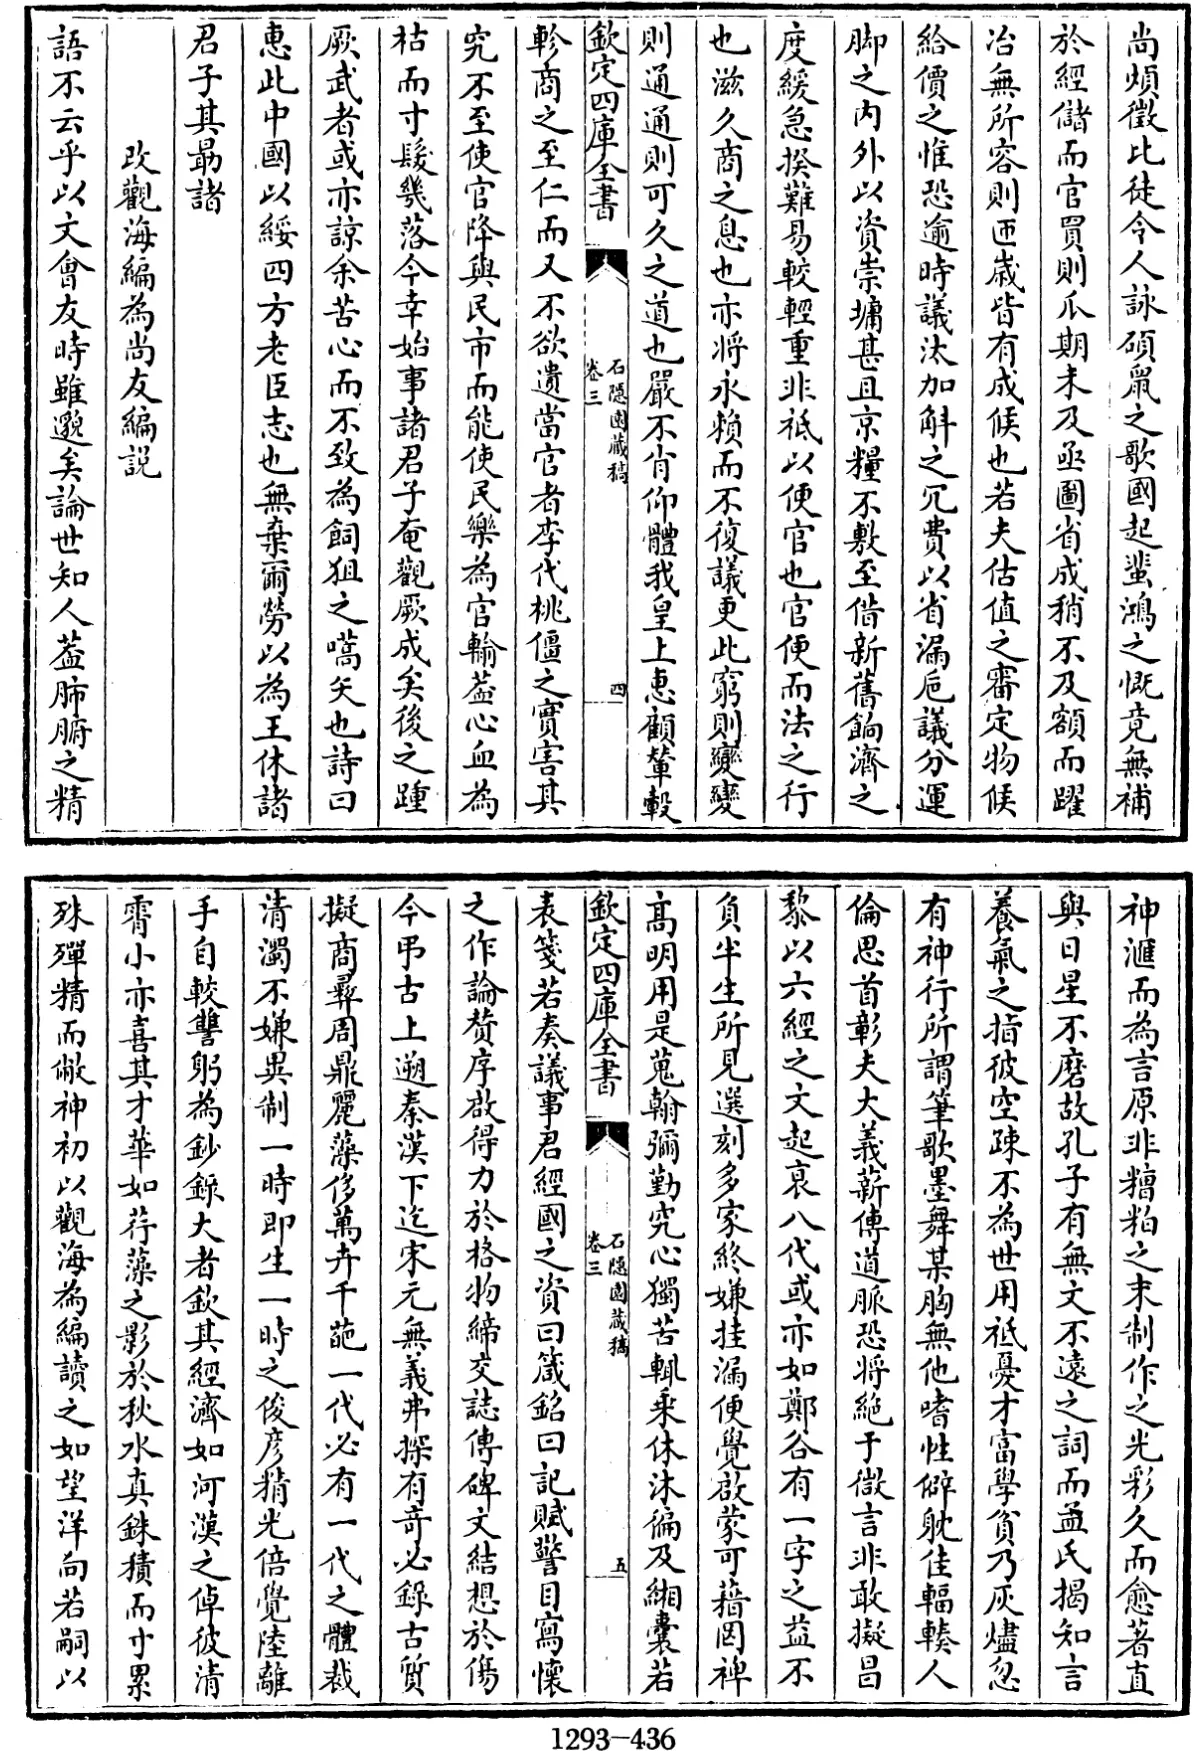 尚煩徵比徒令人詠碩鼠之歌國起蜚鴻之慨竟無補
於經儲而官買則爪期未及亟圖省成稍不及額而躍
冶無所容則匝歲皆有成候也若夫估值之審定物候
給價之惟恐逾時議汰加斛之冗費以省漏巵議分運
脚之内外以資崇墉甚且京糧不敷至借新舊餉濟之
度緩急揆難易較輕重非祗以便官也官便而法之行
也滋久商之息也亦將永賴而不復議更此窮則變變
則通通則可久之道也嚴不肖仰體我皇上惠顧輦轂
欽定四庫全書
石隱園藏稿
卷三
四
軫商之至仁而又不欲遺當官者李代桃僵之實害其
究不至使官降與民市而能使民樂為官輸葢心血為
枯而寸髮幾落今幸始事諸君子奄觀厥成矣後之踵
厥武者或亦諒余苦心而不致為飼狙之嚆矢也詩曰
惠此中國以綏四方老臣志也無棄爾勞以為王休諸
君子其朂諸
改觀海編為尚友編説
語不云乎以文會友時雖邈矣論世知人葢肺腑之精
神滙而為言原非糟粕之末制作之光彩久而愈著直
與日星不磨故孔子有無文不遠之詞而孟氏揭知言
養氣之指彼空疎不為世用祗憂才富學貧乃灰燼忽
有神行所謂筆歌墨舞某胸無他嗜性僻躭佳輻輳人
倫思首彰夫大義薪傳道脈恐將絶于微言非敢擬昌
黎以六經之文起衰八代或亦如鄭谷有一字之益不
負半生所見選刻多家終嫌挂漏便覺啟蒙可藉罔裨
高明用是蒐翰彌勤究心獨苦輒乘休沐徧及緗囊若
欽定四庫全書
石隱園藏稿
卷三
五
表箋若奏議事君經國之資曰箴銘曰記賦警目寫懷
之作論贊序啟得力於格物締交誌傳碑文結想於傷
今弔古上遡秦漢下迄宋元無義弗探有奇必錄古質
擬商彞周鼎麗藻侈萬卉千葩一代必有一代之體裁
清濁不嫌異制一時即生一時之俊彦精光倍覺陸離
手自較讐躬為鈔錄大者欽其經濟如河漢之倬彼清
霄小亦喜其才華如荇藻之影於秋水真銖積而寸累
殊殫精而敝神初以觀海為編讀之如望洋向若嗣以
1293-436